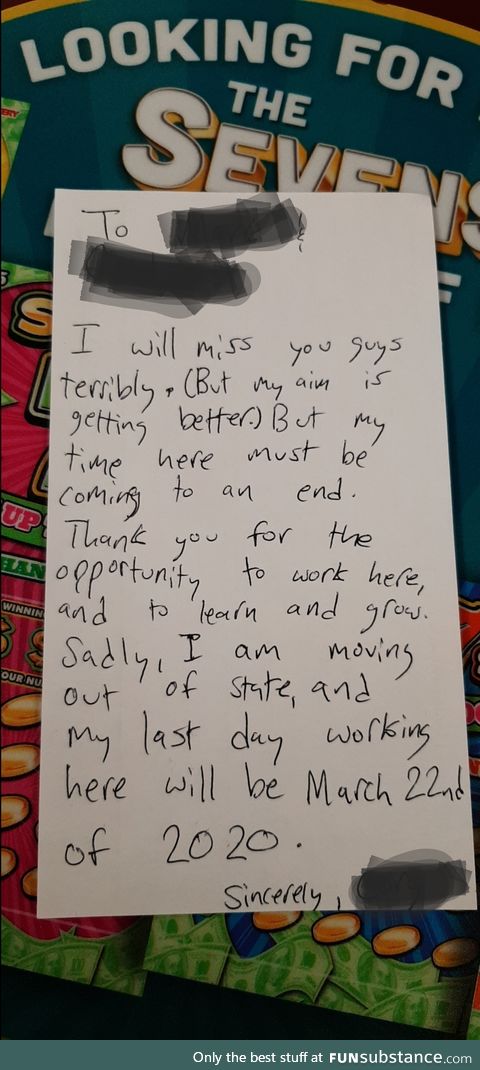 LOOKING FOR
THE
SEVENS
To &
I will miss you guys
terribly. (But my aim is
getting better.) But my
time here must be
coming to an end.
Thank you for the
opportunity to work here,
and to learn and grow.
Sadly, I am moving
out of state, and
My last day working
here will be March 22nd
of 2020.
Sincerely,
UP
WINNIN
OUR NU
Only the best stuff at FUNsubstance.com